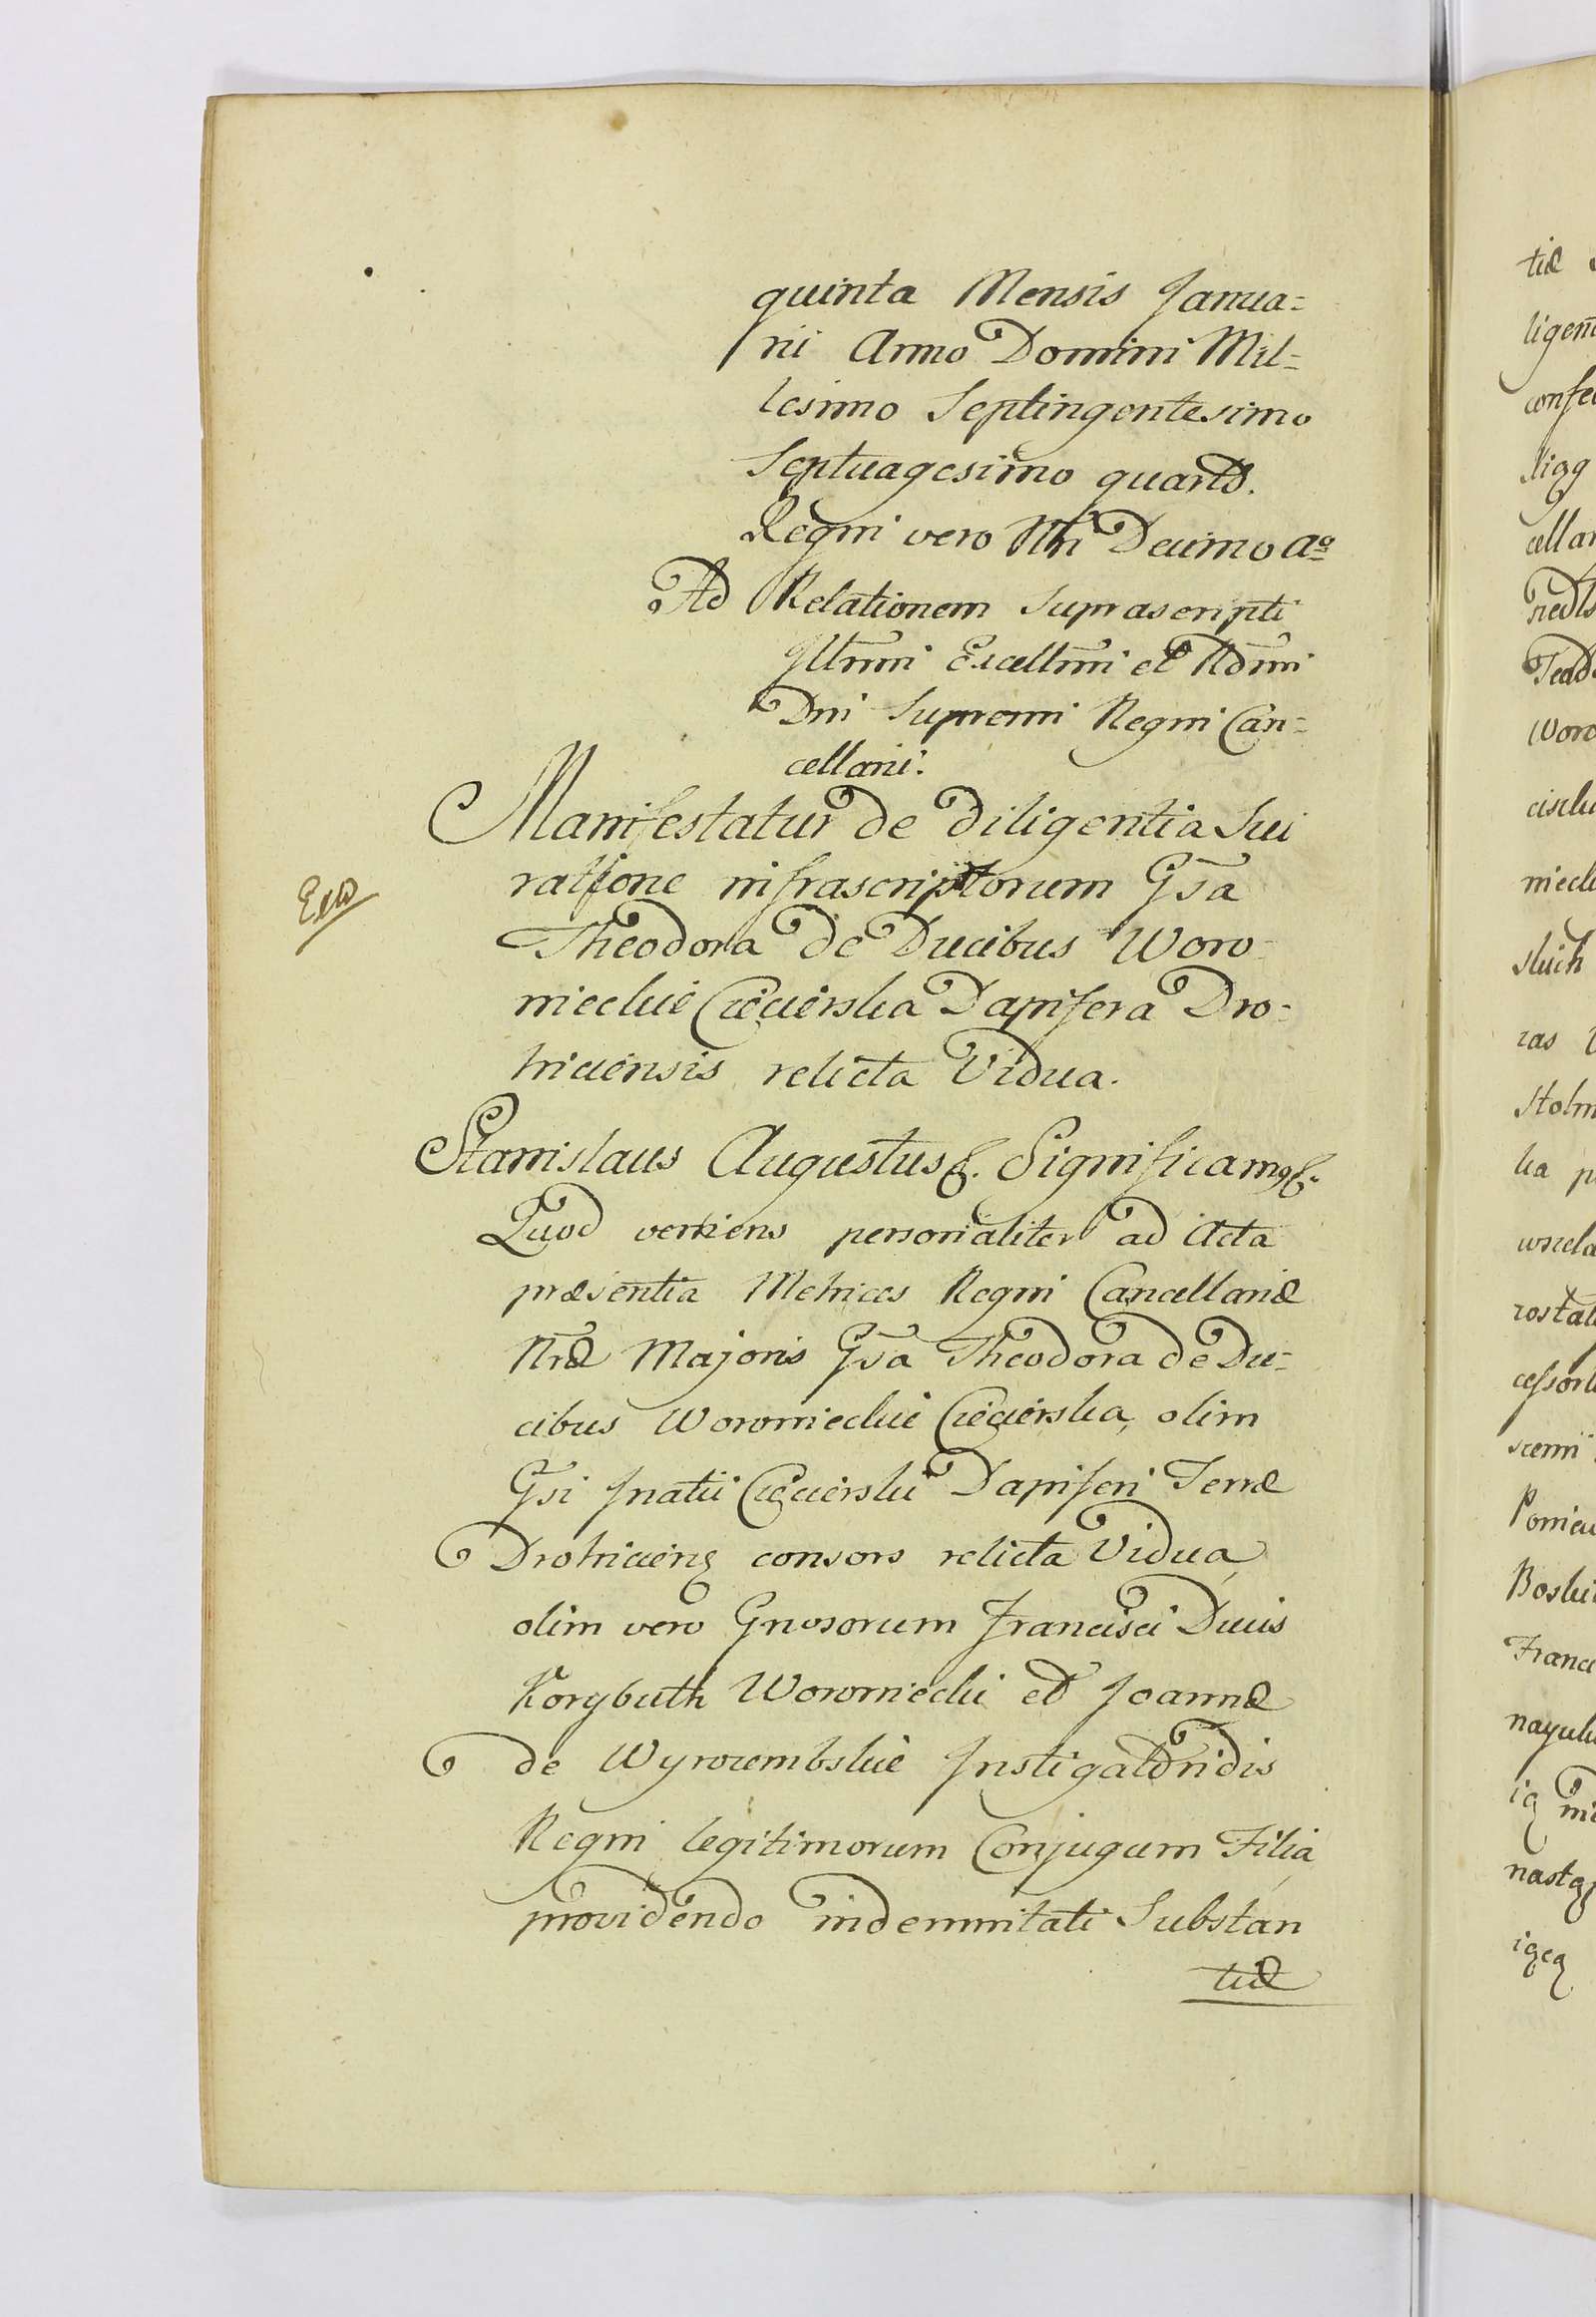 quinta Mensis Janua=
rii Anno Domini Mil=
lesimo Septingentesimo
Septuagesimo quarto.
Regni vero Nri Decimo Ao
Ad Relationem suprascripti
Illmmi Excellmmi et Rdmmi
Dni Supremi Regni Can=
cellarii.
Manifestatur de diligentia sui
ratione infrascriptorum Gsa
Theodora de Ducibus Woro=
nieckie Ciecierska Dapifera Dro=
hiciensis relicta Vidua.
Stanislaus Augustus &. Significamus &.
Quod veniens personaliter ad Acta
præsentia Metrices Regni Cancellariæ
Nræ Majoris Gsa Theodora de Du=
cibus Woronieckie Ciecierska, olim
Gsi Jnatii Ciecierski Dapiferi Terræ
Drohicien consors relicta Vidua,
olim vero Gnosorum Francisci Ducis
Korybuth Woroniecki et Joannæ
de Wyrozembskie Instigatoridis
Regni legitimorum Conjugum Filia,
providendo indemnitati Substan
tiæ
tiæ
confe
cellar
Woro
sluch
ras
nayuk